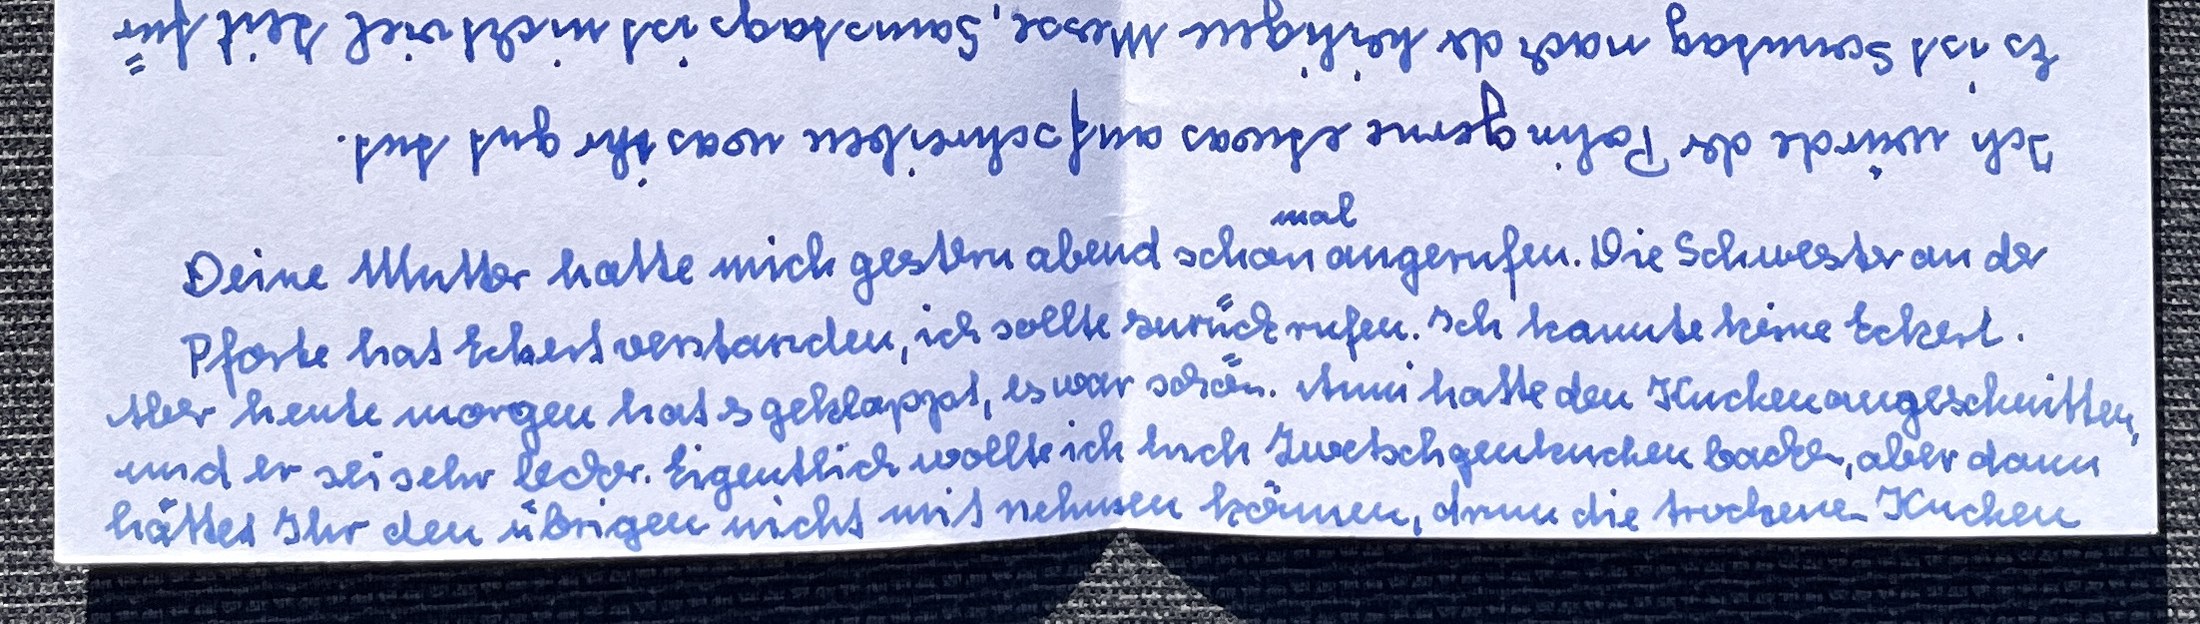 Ich würde der Rahn gerne etwas aufschreiben was ihr gut tut.
Es ist Sonntag nach der heiligen Messe, Samstags ist nicht viel Zeit für
mal
Deine Mutter hatte mich gestern abend schon angerufen. Die Schwester an der
Pforte hat Eckert verstanden, ich sollte zurück rufen. Ich kannte keine Eckert.
Aber heute morgen hat es geklappt, es war schön. Anni hatte den Kuchen angeschnitten,
und er sei sehr lecker. Eigentlich wollte ich Euch Zwetschgenkuchen backen, aber dann
hättet Ihr den übrigen nicht mit nehmen können, drum die trockenen Kuchen